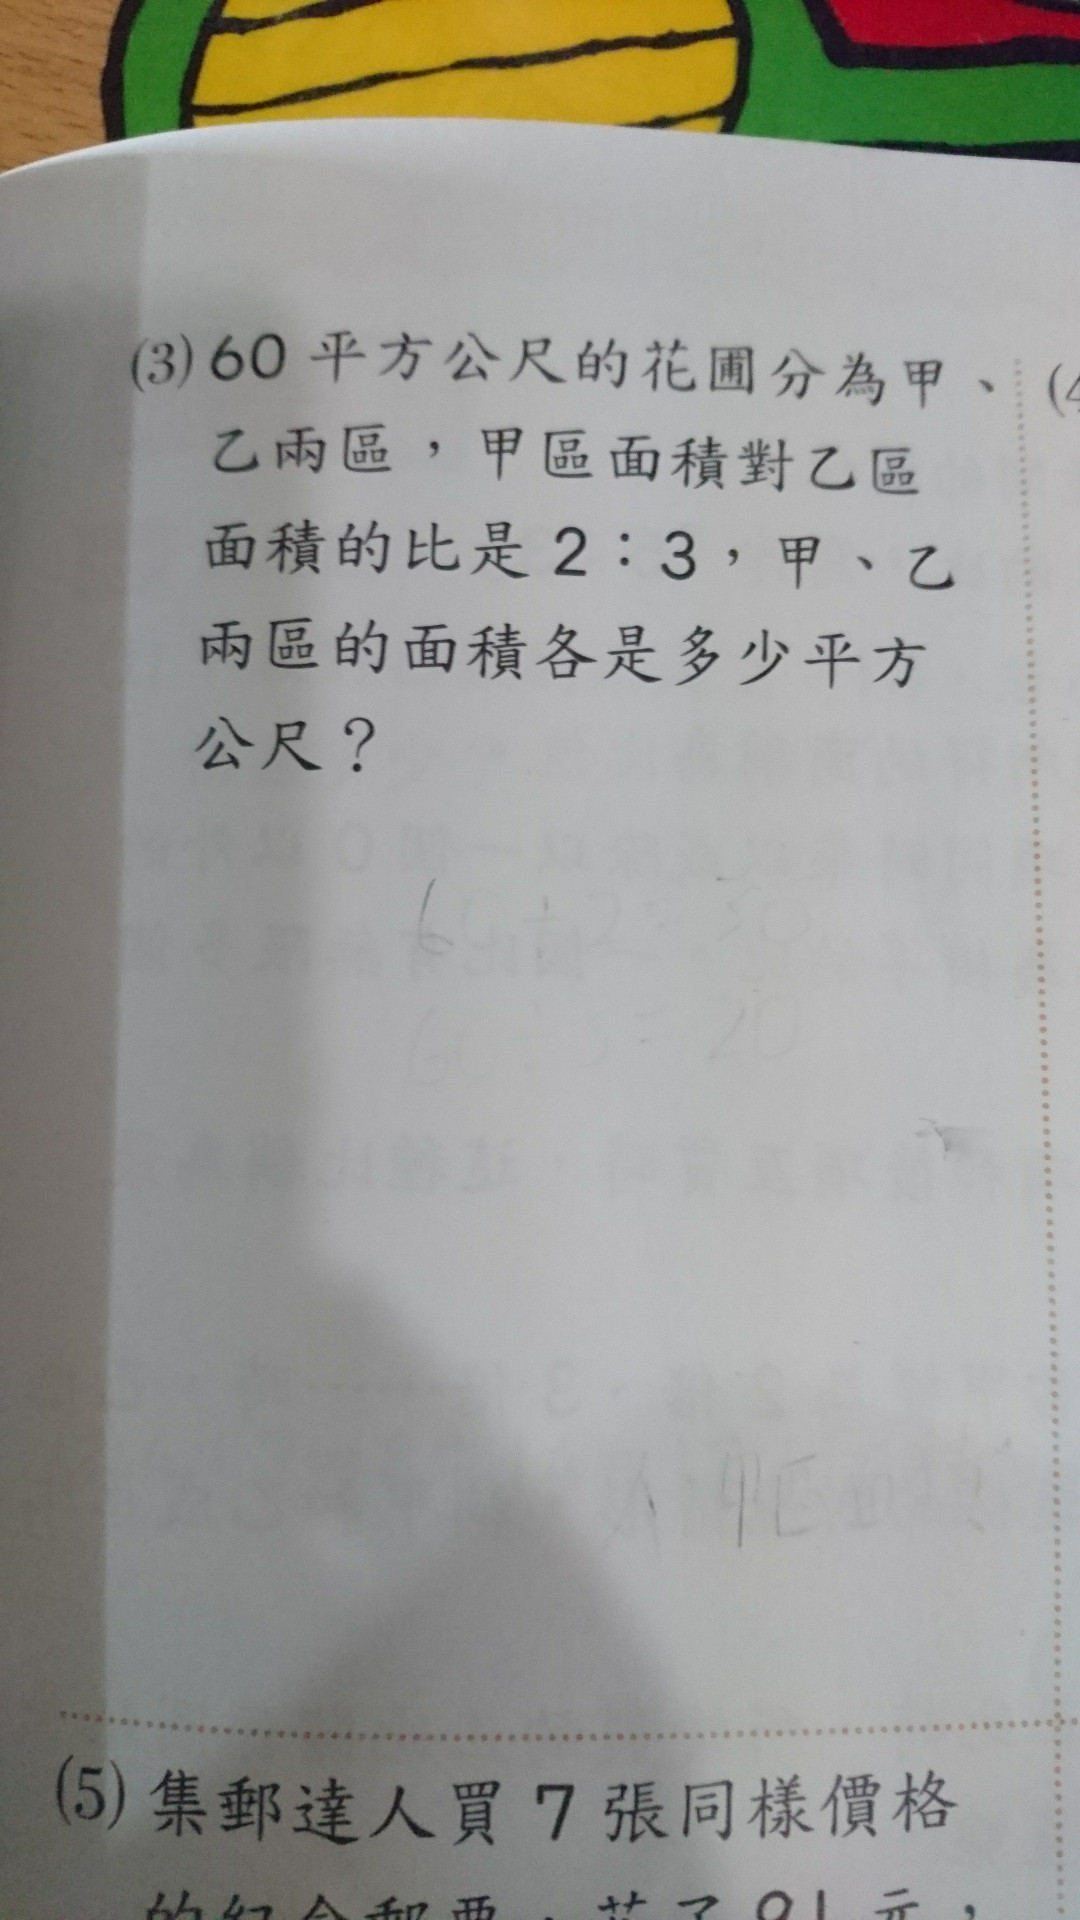 (3) 60 平方公尺的花圃分為甲、
乙兩區，甲區面積對乙區
面積的比是 2：3，甲、乙
兩區的面積各是多少平方
公尺？
(4
60÷2=30
60÷3=20
(5) 集郵達人買 7 張同樣價格
的紀念郵票，花了 91 元，